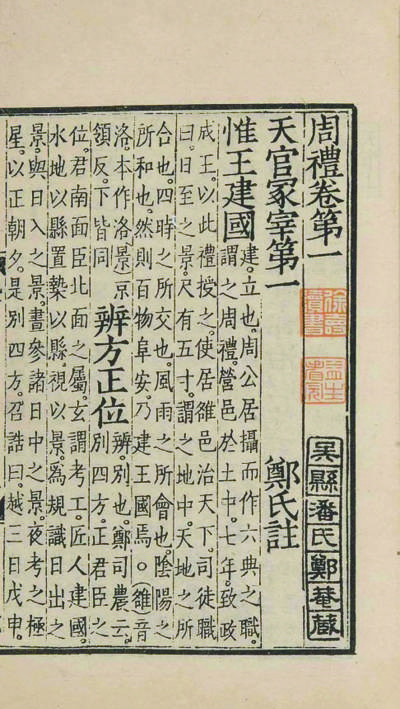 周禮卷第一
吳縣潘氏鄭菴藏
天官冢宰第一 鄭氏註
惟王建國
建。立也。周公居攝而作六典之職。
謂之周禮。營邑於土中。七年。致政
成王。以此禮授之。使居雒邑治天下。司徒職
曰。日至之景。尺有五寸。謂之地中。天地之所
合也。四時之所交也。風雨之所會也。陰陽之
所和也。然則百物阜安。乃建王國焉。○雒音
洛本作洛景京
領反。下皆同
辨方正位
辨。別也。鄭司農云。
別四方。正君臣之
位。君南面臣北面之屬。玄謂考工。匠人建國。
水地以縣置槷以縣。視以景。爲規識日出之
景。與日入之景。晝參諸日中之景。夜考之極
星。以正朝夕。是別四方。召誥曰。越三日戊申。